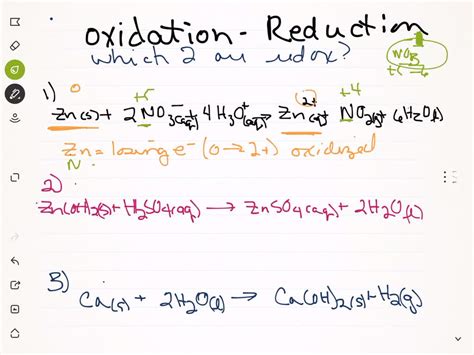 Oxidation - Reduction
which 2 are redox?
NO3
1)
0 +5 +4
Zn(s) + 2NO3⁻(aq) + 4H3O⁺(aq) → Zn²⁺(aq) + NO2(g) + 6H2O(l)
Zn = losing e⁻ (0 → 2+) oxidized
N
2)
Zn(OH)2(s) + H2SO4(aq) → ZnSO4(aq) + 2H2O(l)
3)
Ca(s) + 2H2O(l) → Ca(OH)2(s) + H2(g)